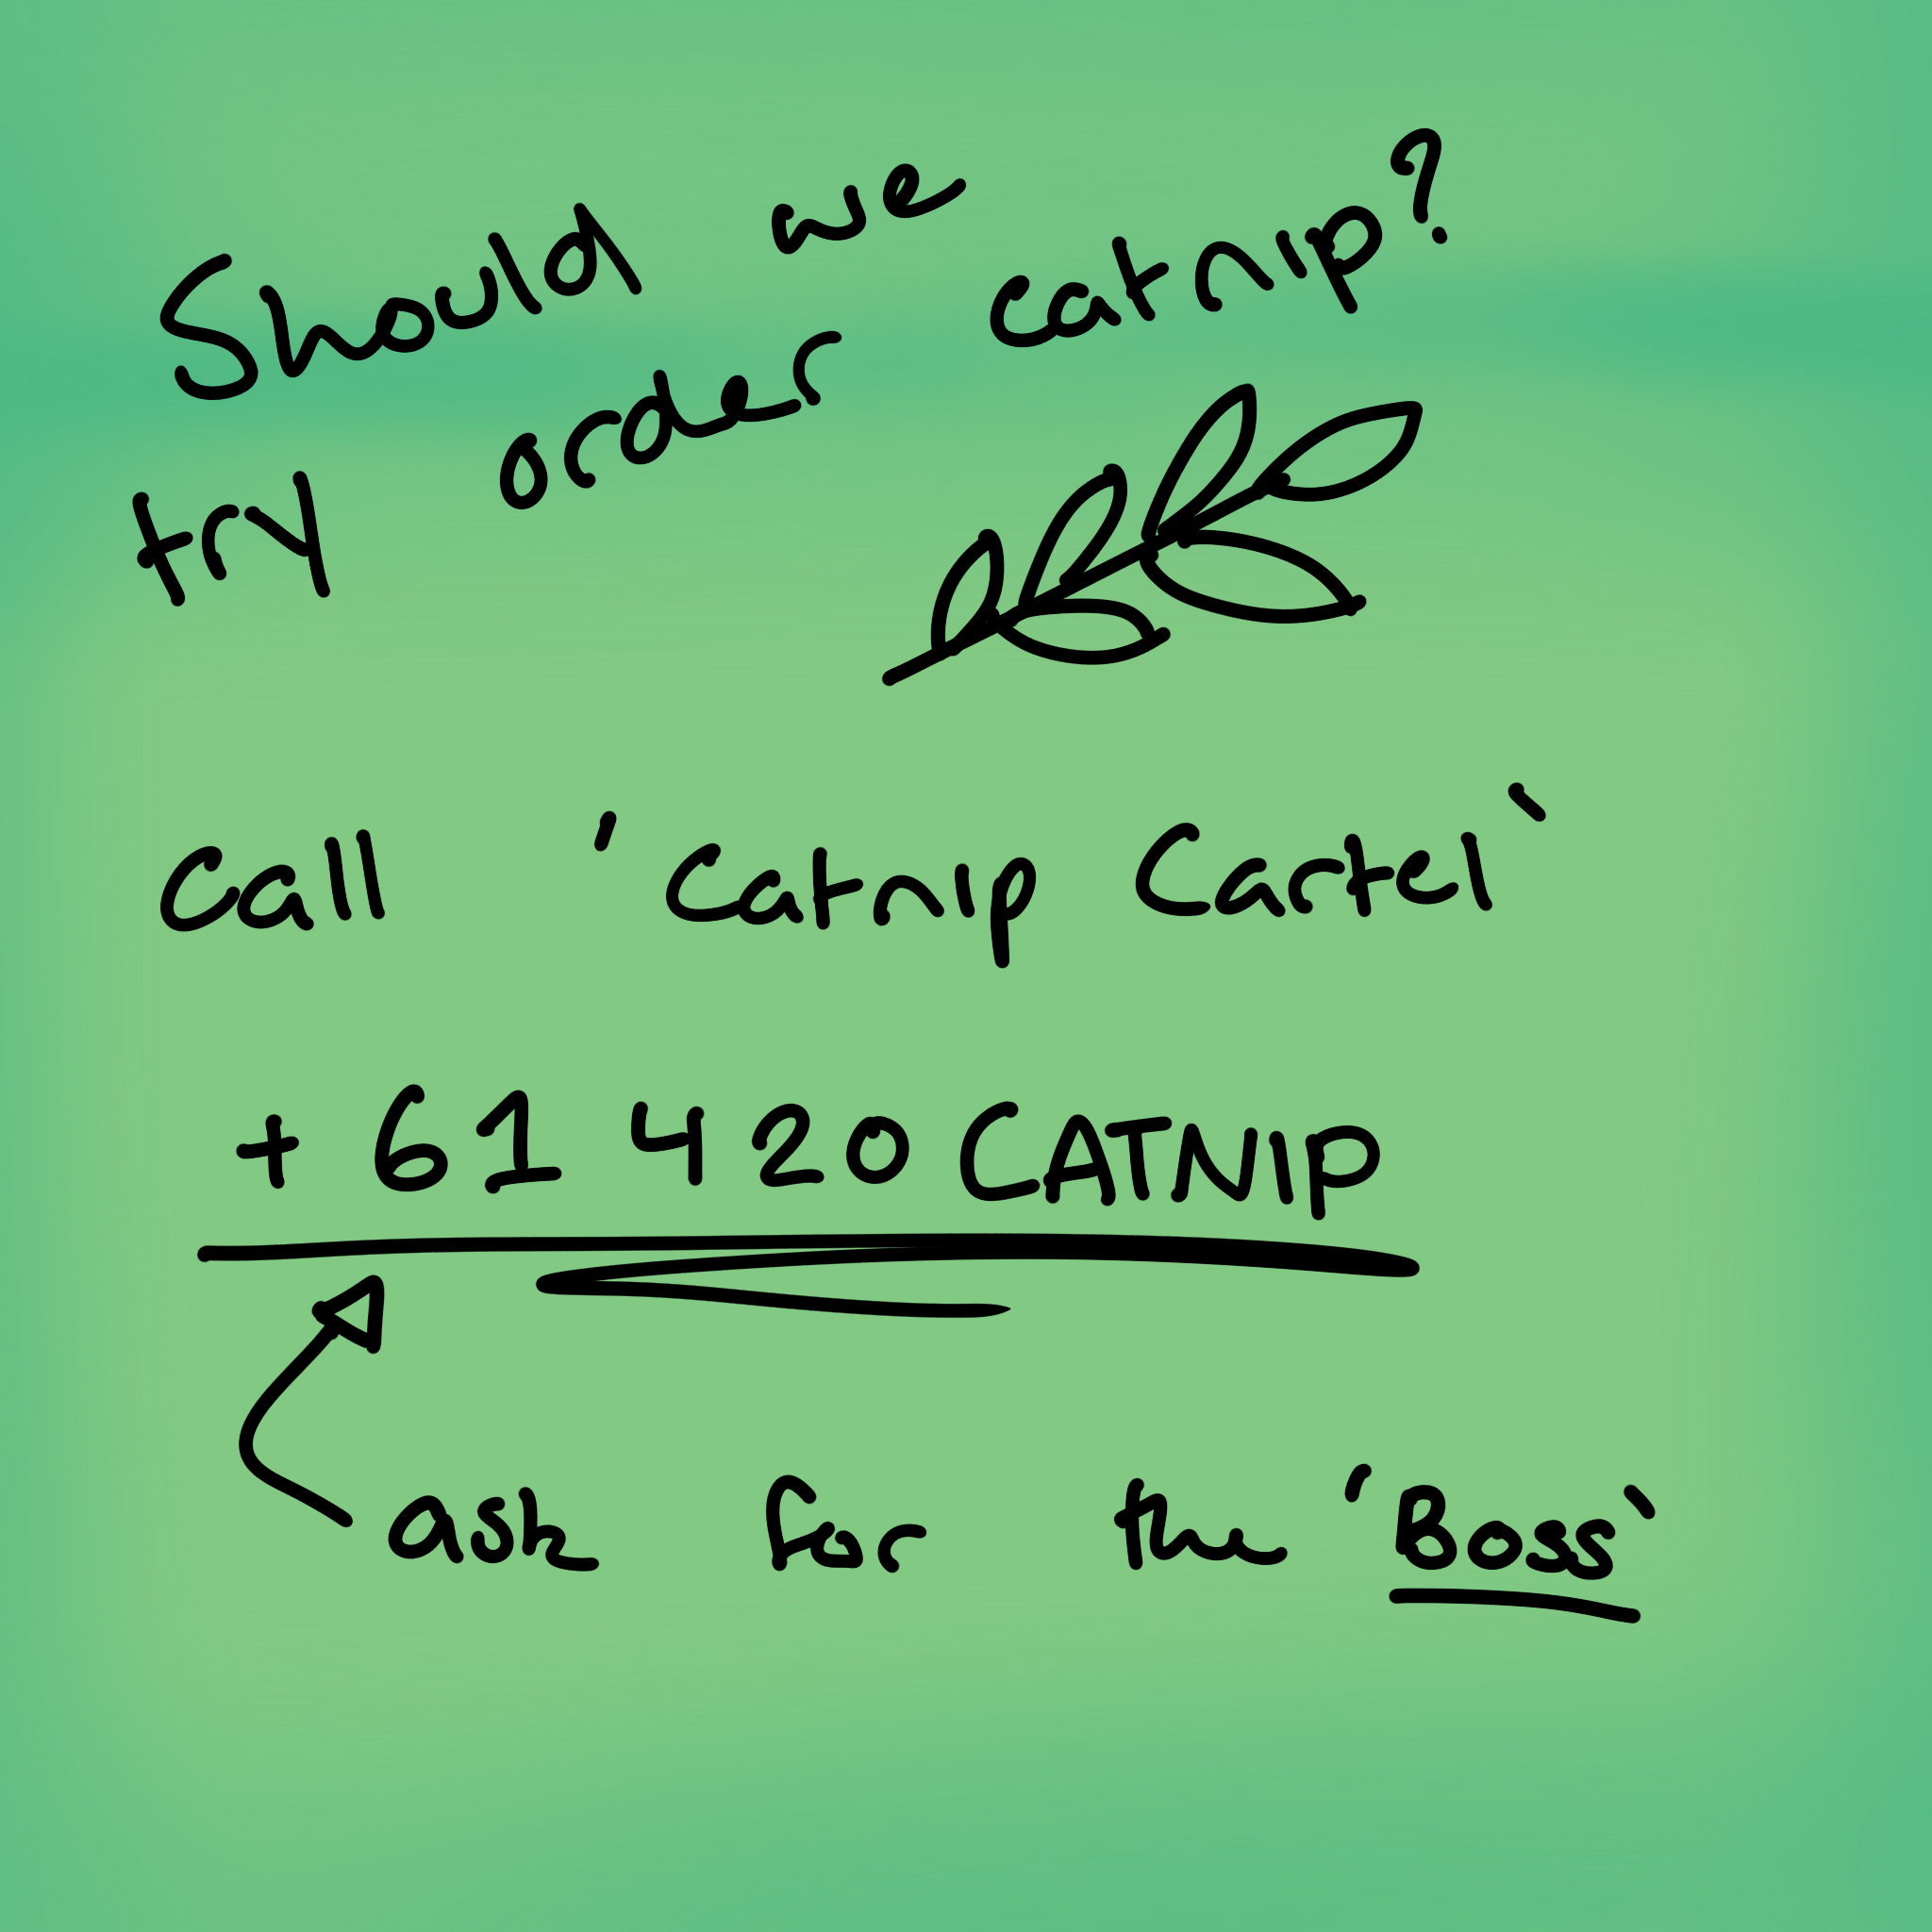 Should we
try order catnip?
Call 'Catnip Cartel'
+61 420 CATNIP
ask for the 'Boss'